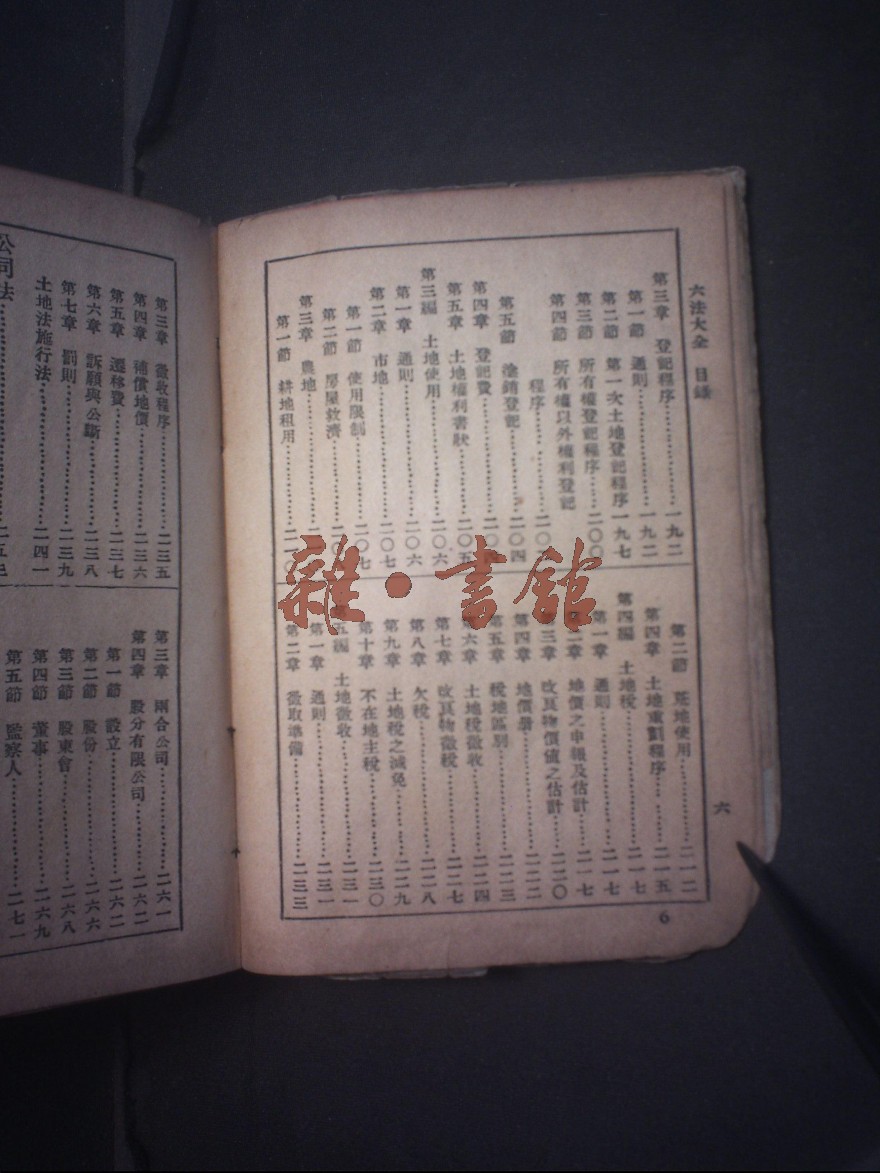 六法大全 目錄
第三章 登記程序……一九二
第一節 通則……一九二
第二節 第一次土地登記程序…一九七
第三節 所有權登記程序……二〇〇
第四節 所有權以外權利登記
程序……二〇
第五節 塗銷登記……二〇四
第四章 登記費……二〇四
第五章 土地權利書狀……二〇五
第三編 土地使用……二〇六
第一章 通則……二〇六
第二章 市地……二〇七
第一節 使用限制……二〇七
第二節 房屋救濟……二〇
第三章 農地……二一
第一節 耕地租用……二一〇
第二節 荒地使用……二一二
第四章 土地重劃程序……二一五
第四編 土地稅……二一七
第一章 通則……二一七
第二章 地價之申報及估計……二一七
第三章 改良物價值之估計……二二〇
第四章 地價冊……二二二
第五章 稅地區別……二二三
第六章 土地稅徵收……二二四
第七章 改良物徵稅……二二七
第八章 欠稅……二二八
第九章 土地稅之減免……二二九
第十章 不在地主稅……二三〇
第五編 土地徵收……二三一
第一章 通則……二三一
第二章 徵收準備……二三三
六
6
第三章 徵收程序……二三五
第四章 補償地價……二三六
第五章 遷移費……二三七
第六章 訴願與公斷……二三八
第七章 罰則……二三九
土地法施行法……二四一
公司法……二五
第三章 兩合公司……二六一
第四章 股分有限公司……二六二
第一節 設立……二六二
第二節 股份……二六六
第三節 股東會……二六八
第四節 董事……二六九
第五節 監察人……二七一
雜·書館